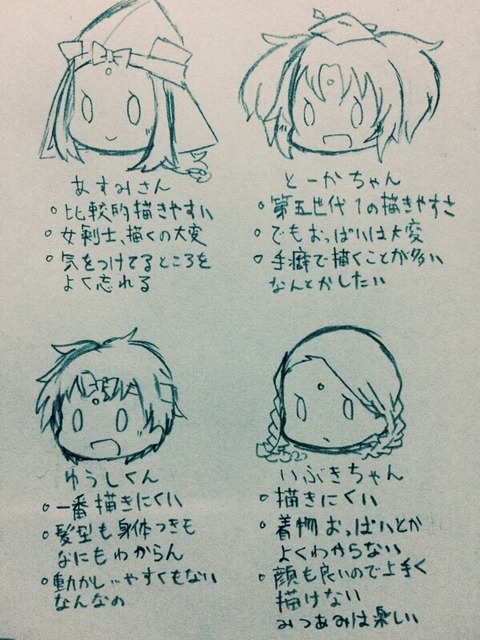 あすみさん
○比較的描きやすい
○女剣士、描くの大変
○気をつけてるところを
よく忘れる
とーかちゃん
○第五世代1の描きやすさ
○でもおっぱいは大変
○手癖で描くことが多い
なんとかしたい
ゆうしくん
○一番描きにくい
○髪型も身体つきも
なにもわからん
○動かしやすくもない
なんなの
いぶきちゃん
○描きにくい
○着物おっぱいとか
よくわからない
○顔も良いので上手く
描けない
みつあみは楽しい